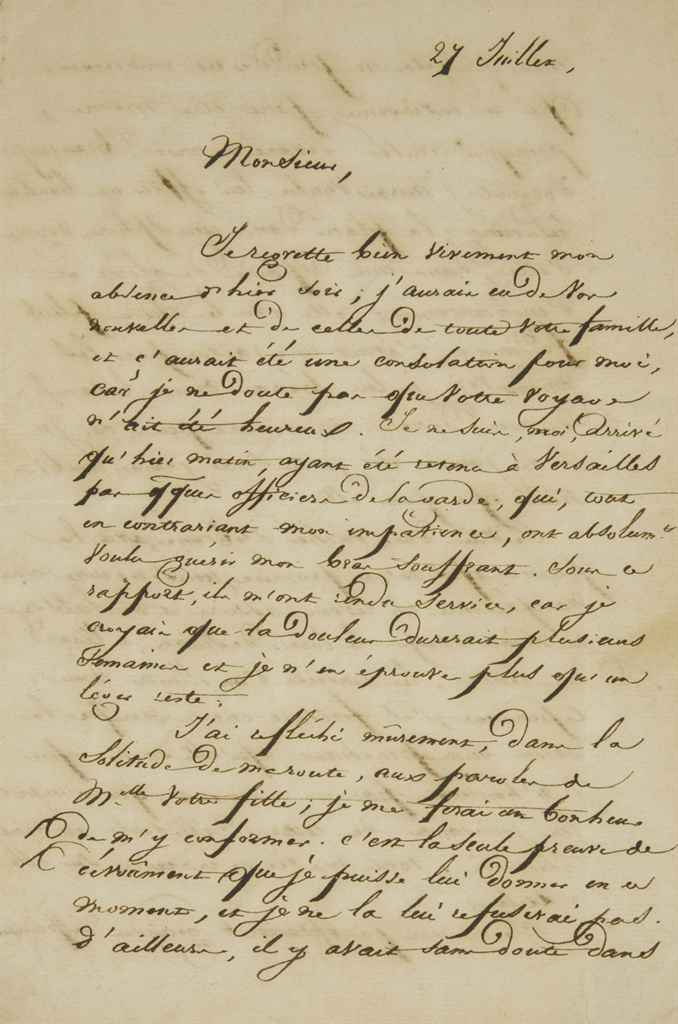 27 Juillet,
Monsieur,
Je regrette bien vivement mon
absence d'hier soir; j'aurais eu de Vos
nouvelles et de celles de toute Votre famille,
et ç'aurait été une consolation pour moi,
car je ne doute pas que Votre Voyage
n'ait été heureux. Je ne suis, moi, arrivé
qu'hier matin, ayant été retenu à Versailles
par qques officiers de la garde, qui, tout
en contrariant mon impatience, ont absolumt
Voulu guérir mon bras souffrant. Sous ce
rapport, ils m'ont rendu service, car je
croyais que la douleur durerait plusieurs
Semaines et je n'en éprouve plus qu'un
léger reste.
J'ai réfléchi mûrement, dans la
solitude de ma route, aux paroles de
Mlle Votre fille; je me ferai un bonheur
de m'y conformer. c'est la seule preuve de
dévoûment que je puisse lui donner en ce
moment, et je ne la lui refuserai pas.
d'ailleurs, il y avait sans doute dans